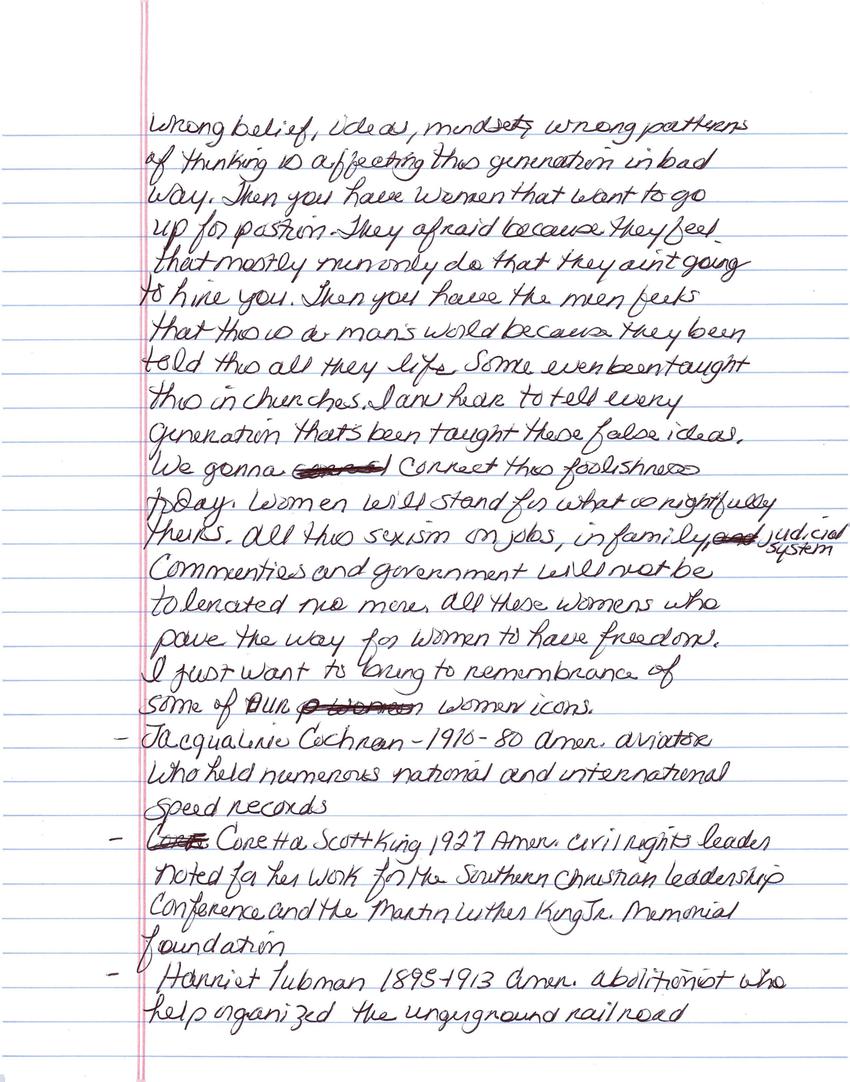 wrong belief, ideas, mindsets, wrong patterns
of thinking is affecting this generation in bad
way. Then you have women that want to go
up for postion. They afraid because they feel
that mostly men only do that they ain't going
to hire you. Then you have the men feels
that this is a man's world because they been
told this all they life. Some even been taught
this in churches. I am hear to tell every
generation that's been taught these false ideas.
We gonna correct this foolishness
today. Women will stand for what is rightfully
theirs. All this sexism on jobs, in family, judicial
system
Communties and government will not be
tolerated no more. All these womens who
pave the way for women to have freedom.
I just want to bring to remembrance of
some of our women icons.
- Jacqualine Cochran - 1910 - 80 Amer. aviator
who held numerous national and international
speed records
- Coretta Scott King 1927 Amer. civil rights leader
noted for her work for the Southern Christian leadership
Conference and the Martin Luther King Jr. Memorial
foundation
- Harriet Tubman 1895-1913 Amer. abolitionist who
help organized the ungurground railroad